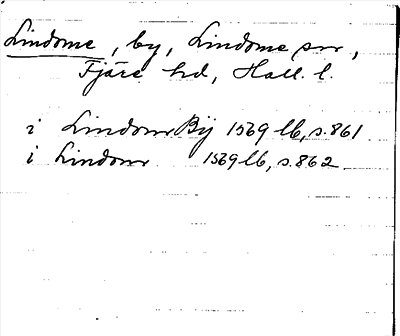 Lindome, by, Lindome sn,
Fjäre hd, Hall. l.
i Lindom Bÿ 1569 lb, s. 861
i Lindom 1569 lb, s. 862